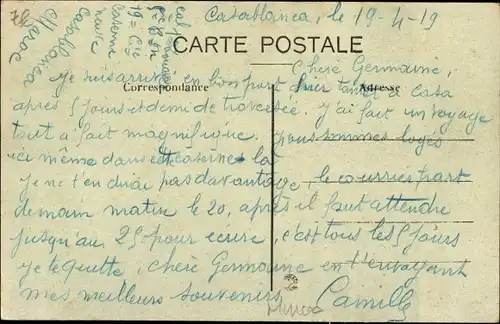 Casablanca, le 19-4-19
CARTE POSTALE
Correspondance
Adresse
Chère Germaine,
Je suis arrivé en bon port hier à Casa
après 5 jours et demi de traversée. J'ai fait un voyage
tout a fait magnifique. nous sommes logés
ici même dans cette caserne la
je ne t'en dirai pas davantage, le courrier part
demain matin le 20, après il faut attendre
jusqu'au 25 pour écrire, c'est tous les 5 jours
je te quitte, chère Germaine en t'envoyant
mes meilleurs souvenirs Camille
Maroc
Casablanca
Caserne
19e Cie